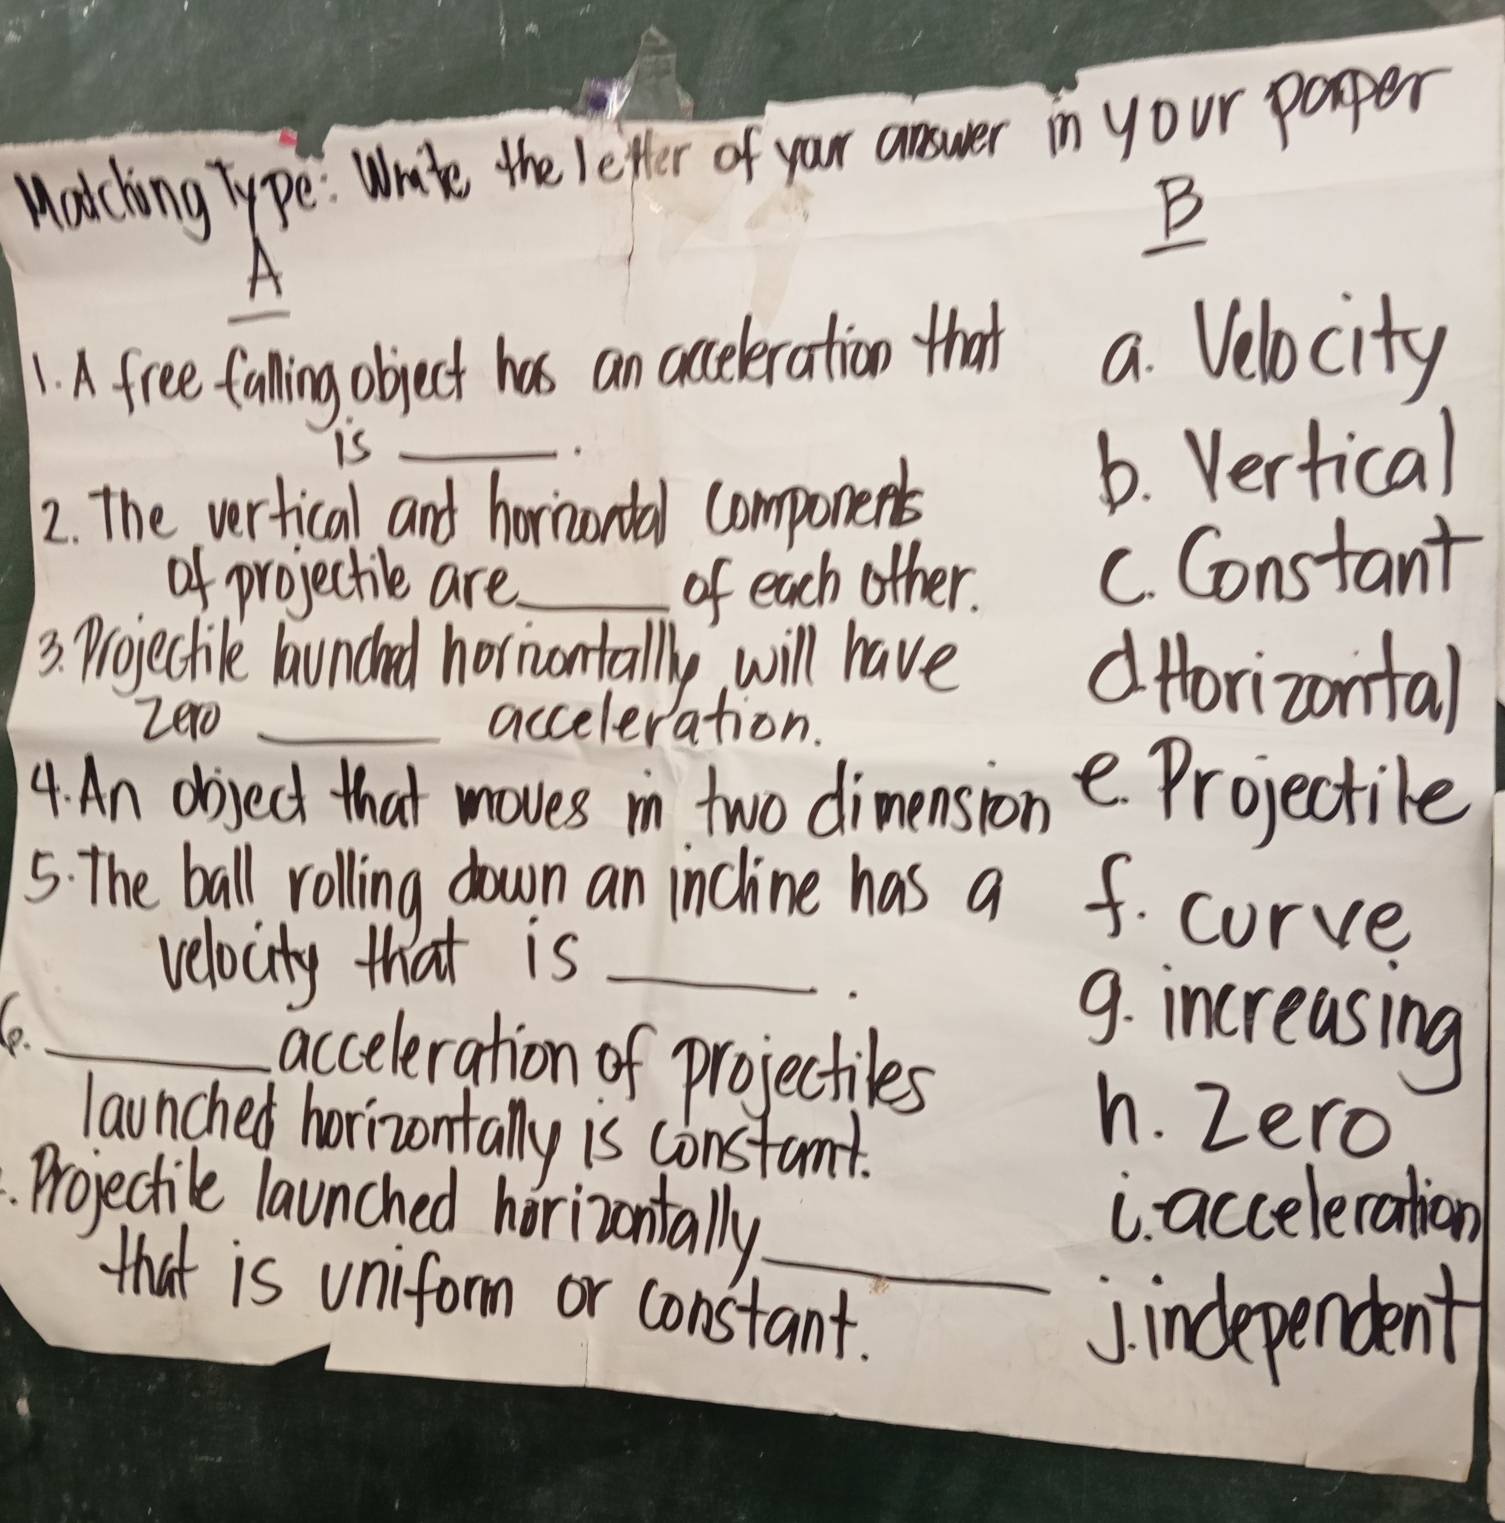 Matching Type: Write the letter of your answer in your paper
A
B
1. A free falling object has an acceleration that
is ______.
2. The vertical and horizontal components
of projectile are ______ of each other.
3. Projectile launched horizontally will have
zero ______ acceleration.
4. An object that moves in two dimension
5. The ball rolling down an incline has a
velocity that is ______.
6. ______ acceleration of projectiles
launched horizontally is constant.
. Projectile launched horizontally ______
that is uniform or constant.
a. Velocity
b. Vertical
c. Constant
d Horizontal
e. Projectile
f. curve
g. increasing
h. Zero
i. acceleration
j. independent